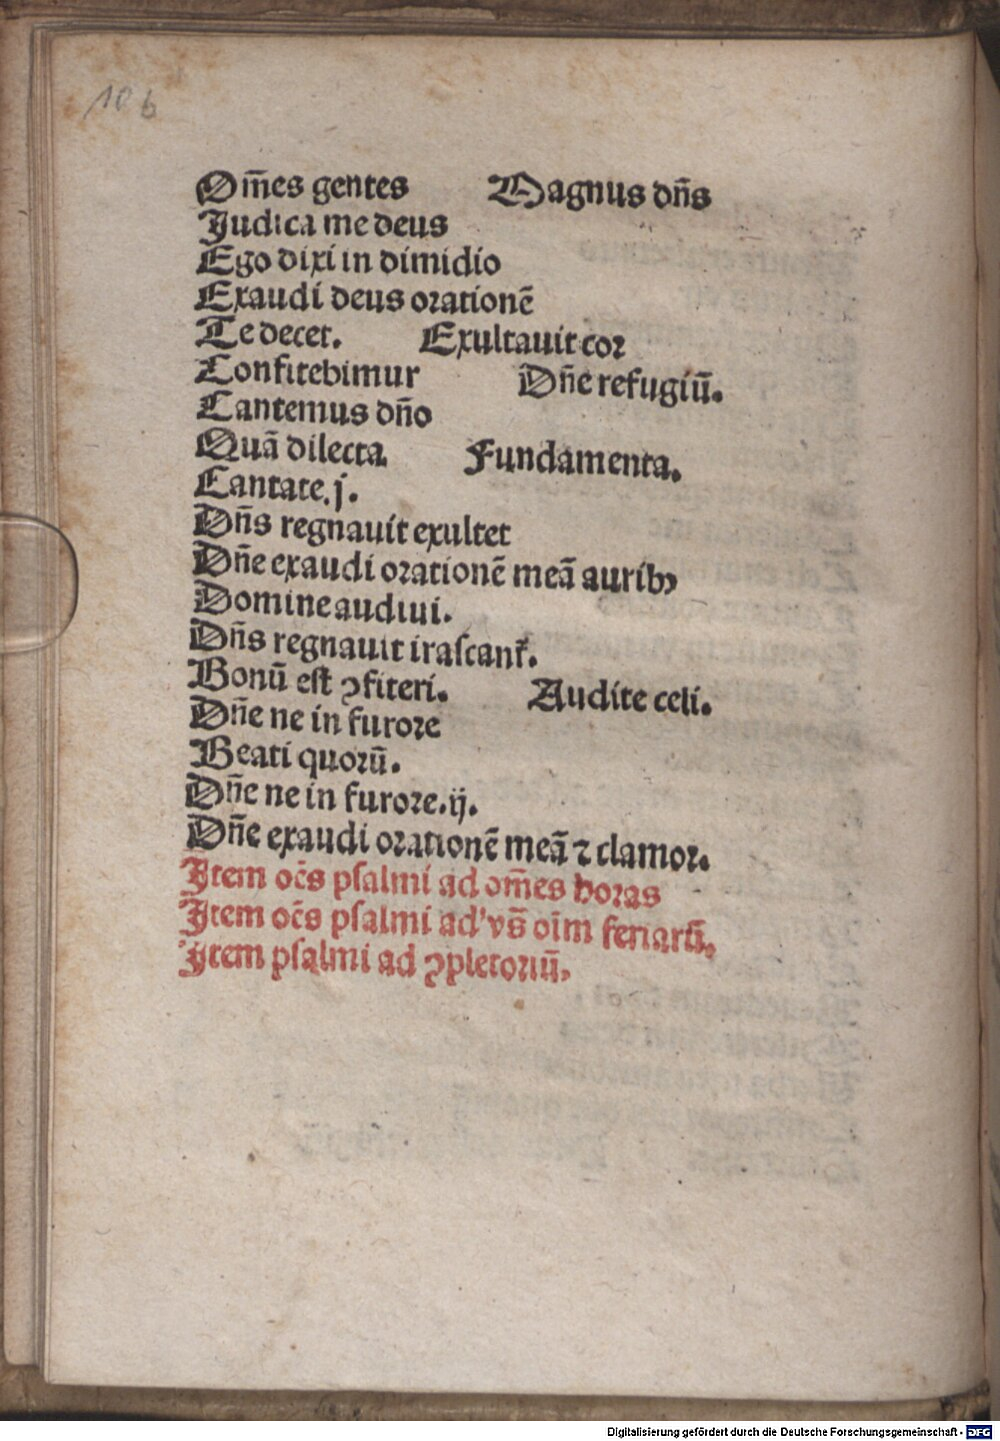 10 b
Om̅es gentes Magnus dn̄s
Judica me deus
Ego dixi in dimidio
Exaudi deus orationē
Te decet. Exultauit cor
Confitebimur Dn̄e refugiū.
Cantemus dn̄o
Quā dilecta Fundamenta.
Cantate.j.
Dn̄s regnauit exultet
Dn̄e exaudi orationē meā auribꝫ
Domine audiui.
Dn̄s regnauit iraſcant᷑.
Bonū eſt ꝯfiteri. Audite celi.
Dn̄e ne in furore
Beati quorū.
Dn̄e ne in furore.ij.
Dn̄e exaudi orationē meā ⁊ clamor.
Item oc̄s pſalmi ad om̄es horas
Item oc̄s pſalmi ad vs̄ oīm feriarū,
Item pſalmi ad ꝯpletoriū,
Digitalisierung gefördert durch die Deutsche Forschungsgemeinschaft - DFG